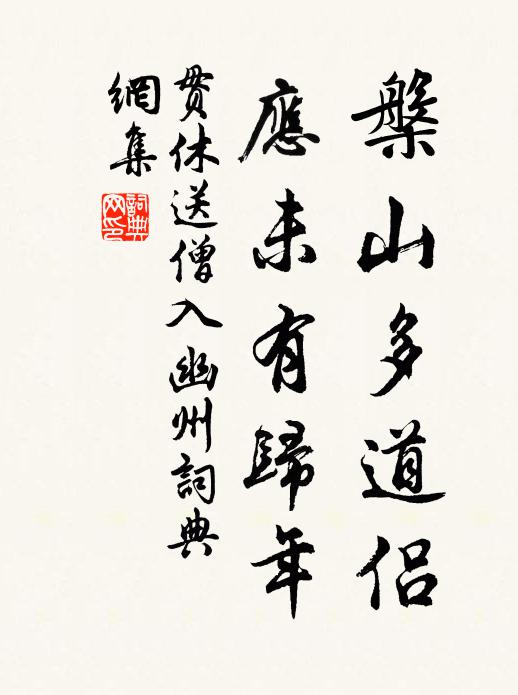 槃山多道侶
應未有歸年
貫休送僧入幽州詞典
網集
詞典
网印